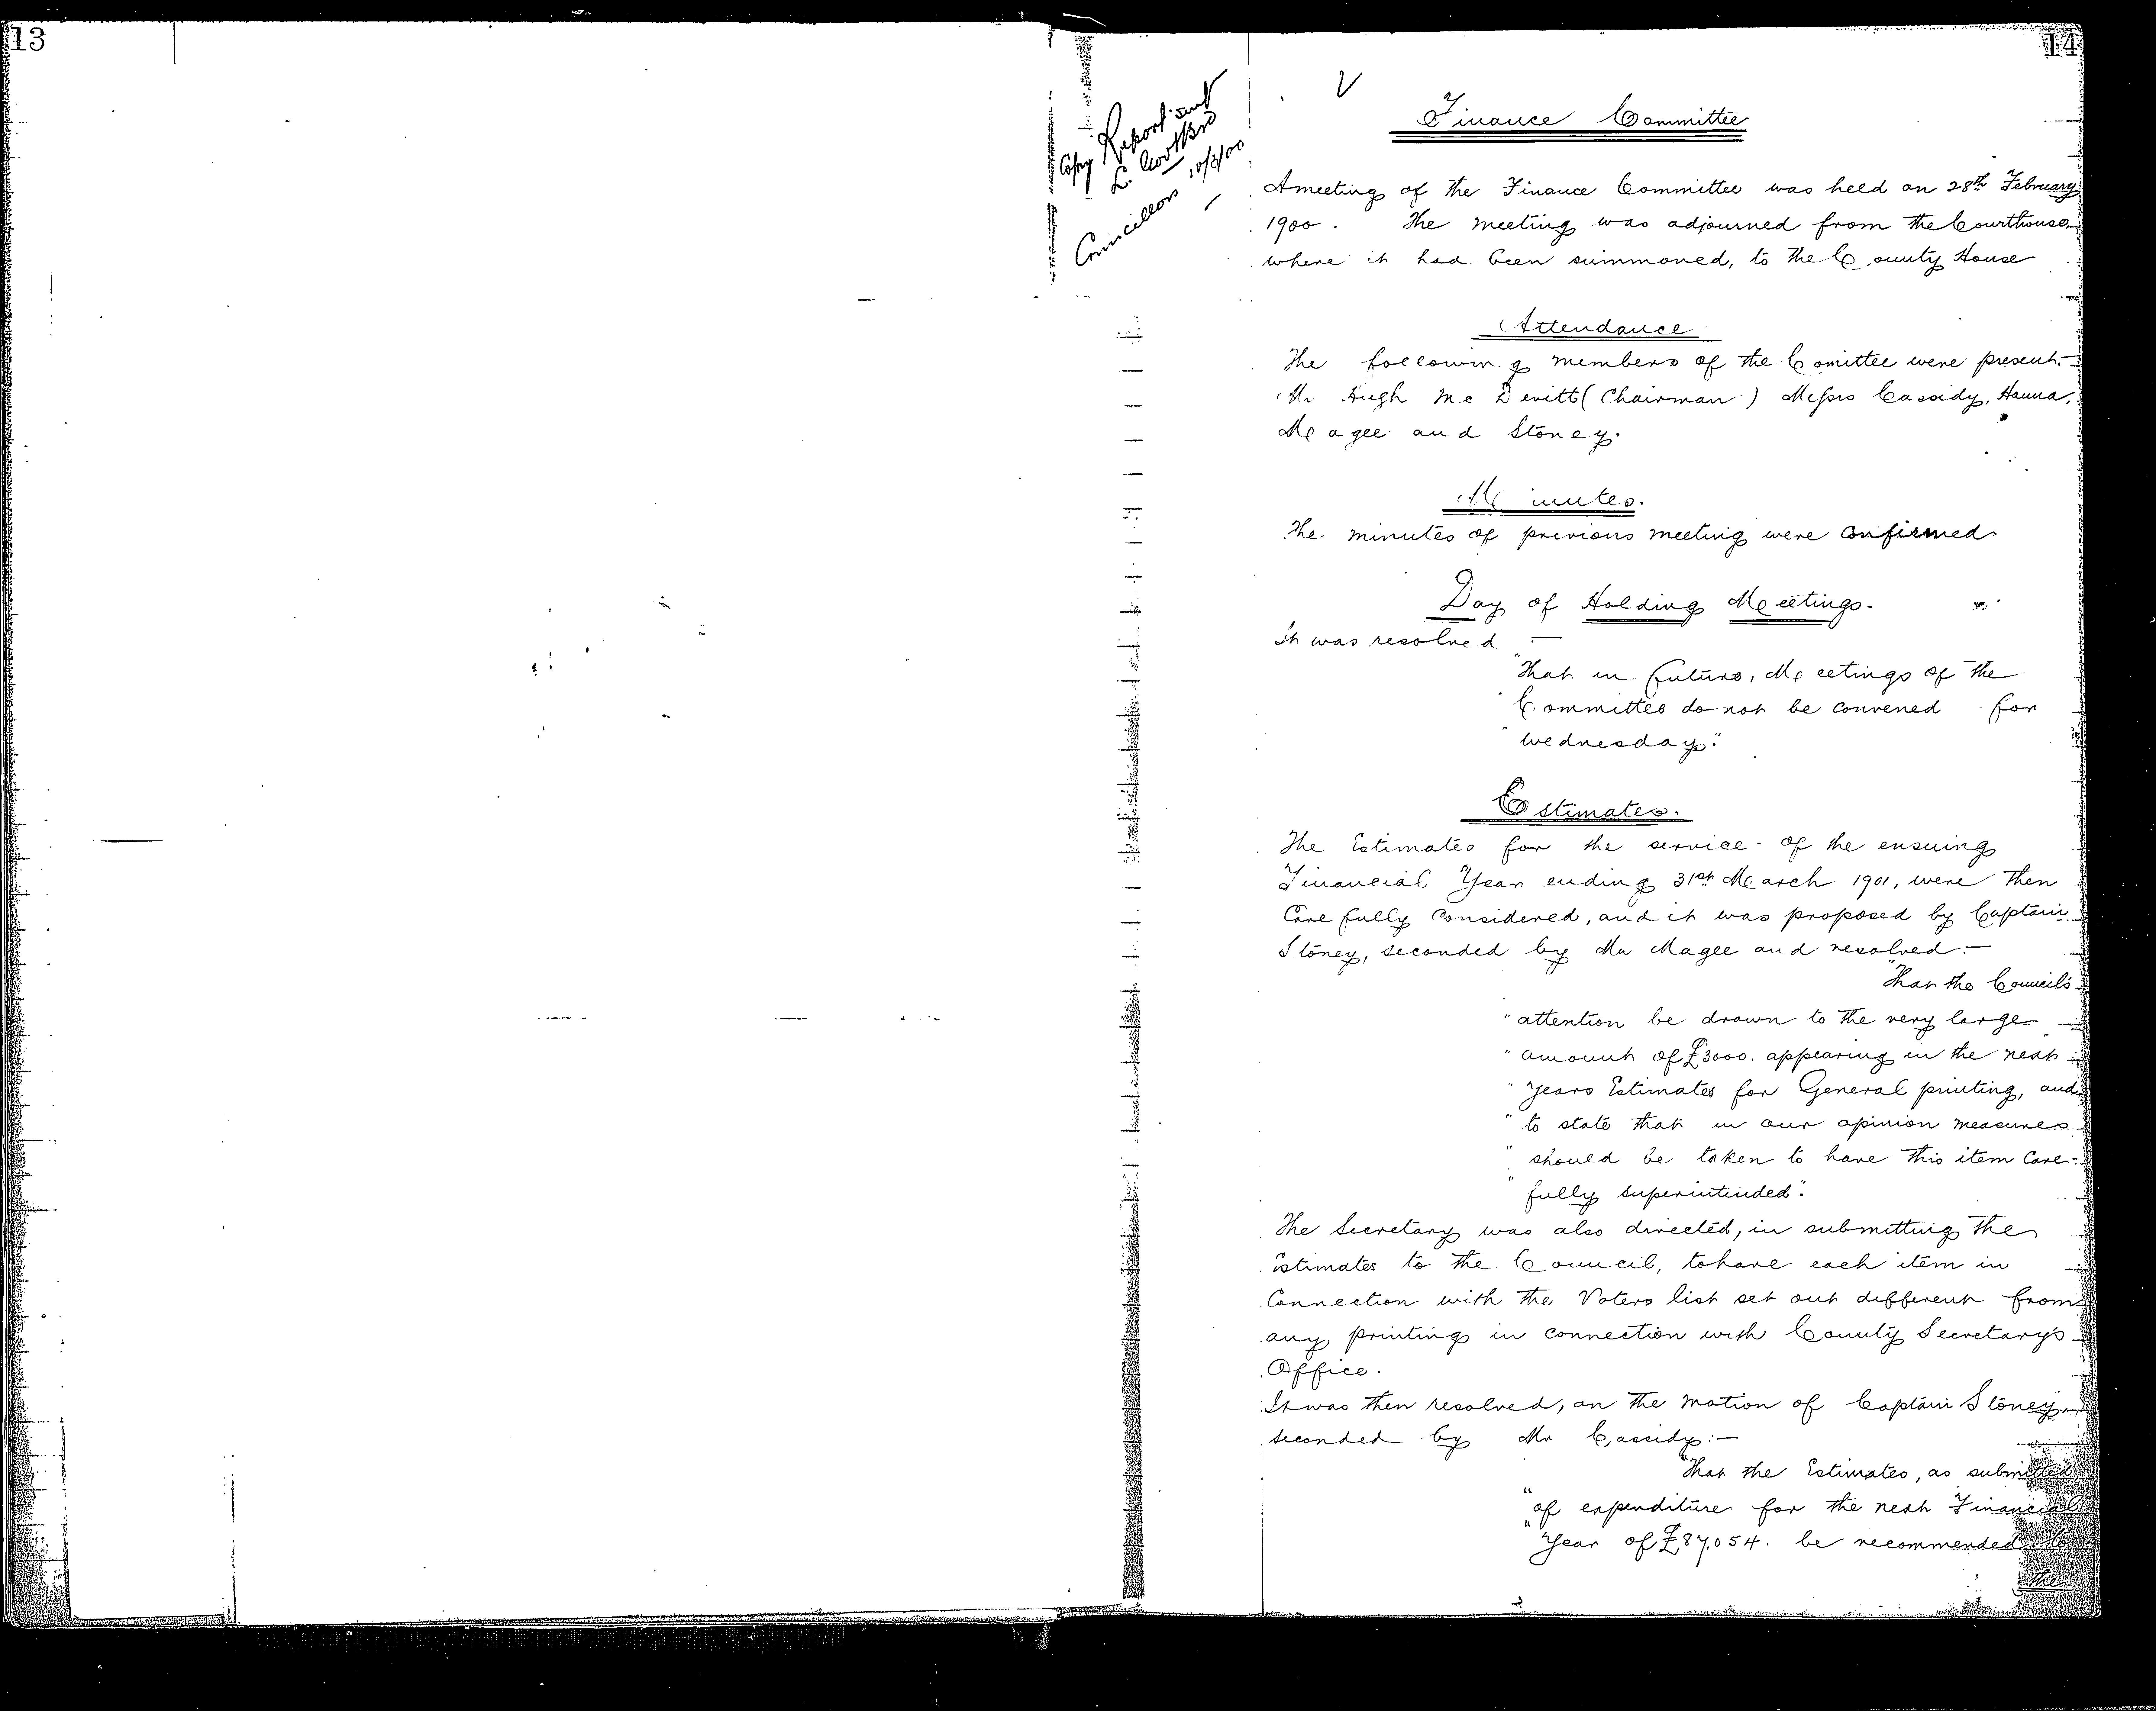 13
14
Copy Report sent
L. Govt Brd
Councillors 10/3/00
Finance Committee
A meeting of the Finance Committee was held on 28th February
1900. The meeting was adjourned from the Courthouse,
where it had been summoned, to the County House
Attendance
The following members of the Comittee were present:-
Mr Hugh Mc Devitt (Chairman) Messrs Cassidy, Hanna,
Magee and Stoney.
Minutes.
The minutes of previous meeting were confirmed
Day of Holding Meetings.
It was resolved —
"That in future, Meetings of the
"Committee do not be convened for
"Wednesday."
Estimates.
The Estimates for the service of the ensuing
Financial Year ending 31st March 1901, were then
Carefully considered, and it was proposed by Captain
Stoney, seconded by Mr Magee and resolved:-
"That the Council's
"attention be drawn to the very large
"amount of £3000. appearing in the next
"Years Estimates for General printing, and
"to state that in our opinion measures
"should be taken to have this item Care-
"fully superintended".
The Secretary was also directed, in submitting the
Estimates to the Council, to have each item in
Connection with the Voters list set out different from
any printing in connection with County Secretary's
Office.
It was then resolved, on the motion of Captain Stoney,
seconded by Mr Cassidy:-
"That the Estimates, as submitted
"of expenditure for the next Financial
"Year of £87,054. be recommended to
the